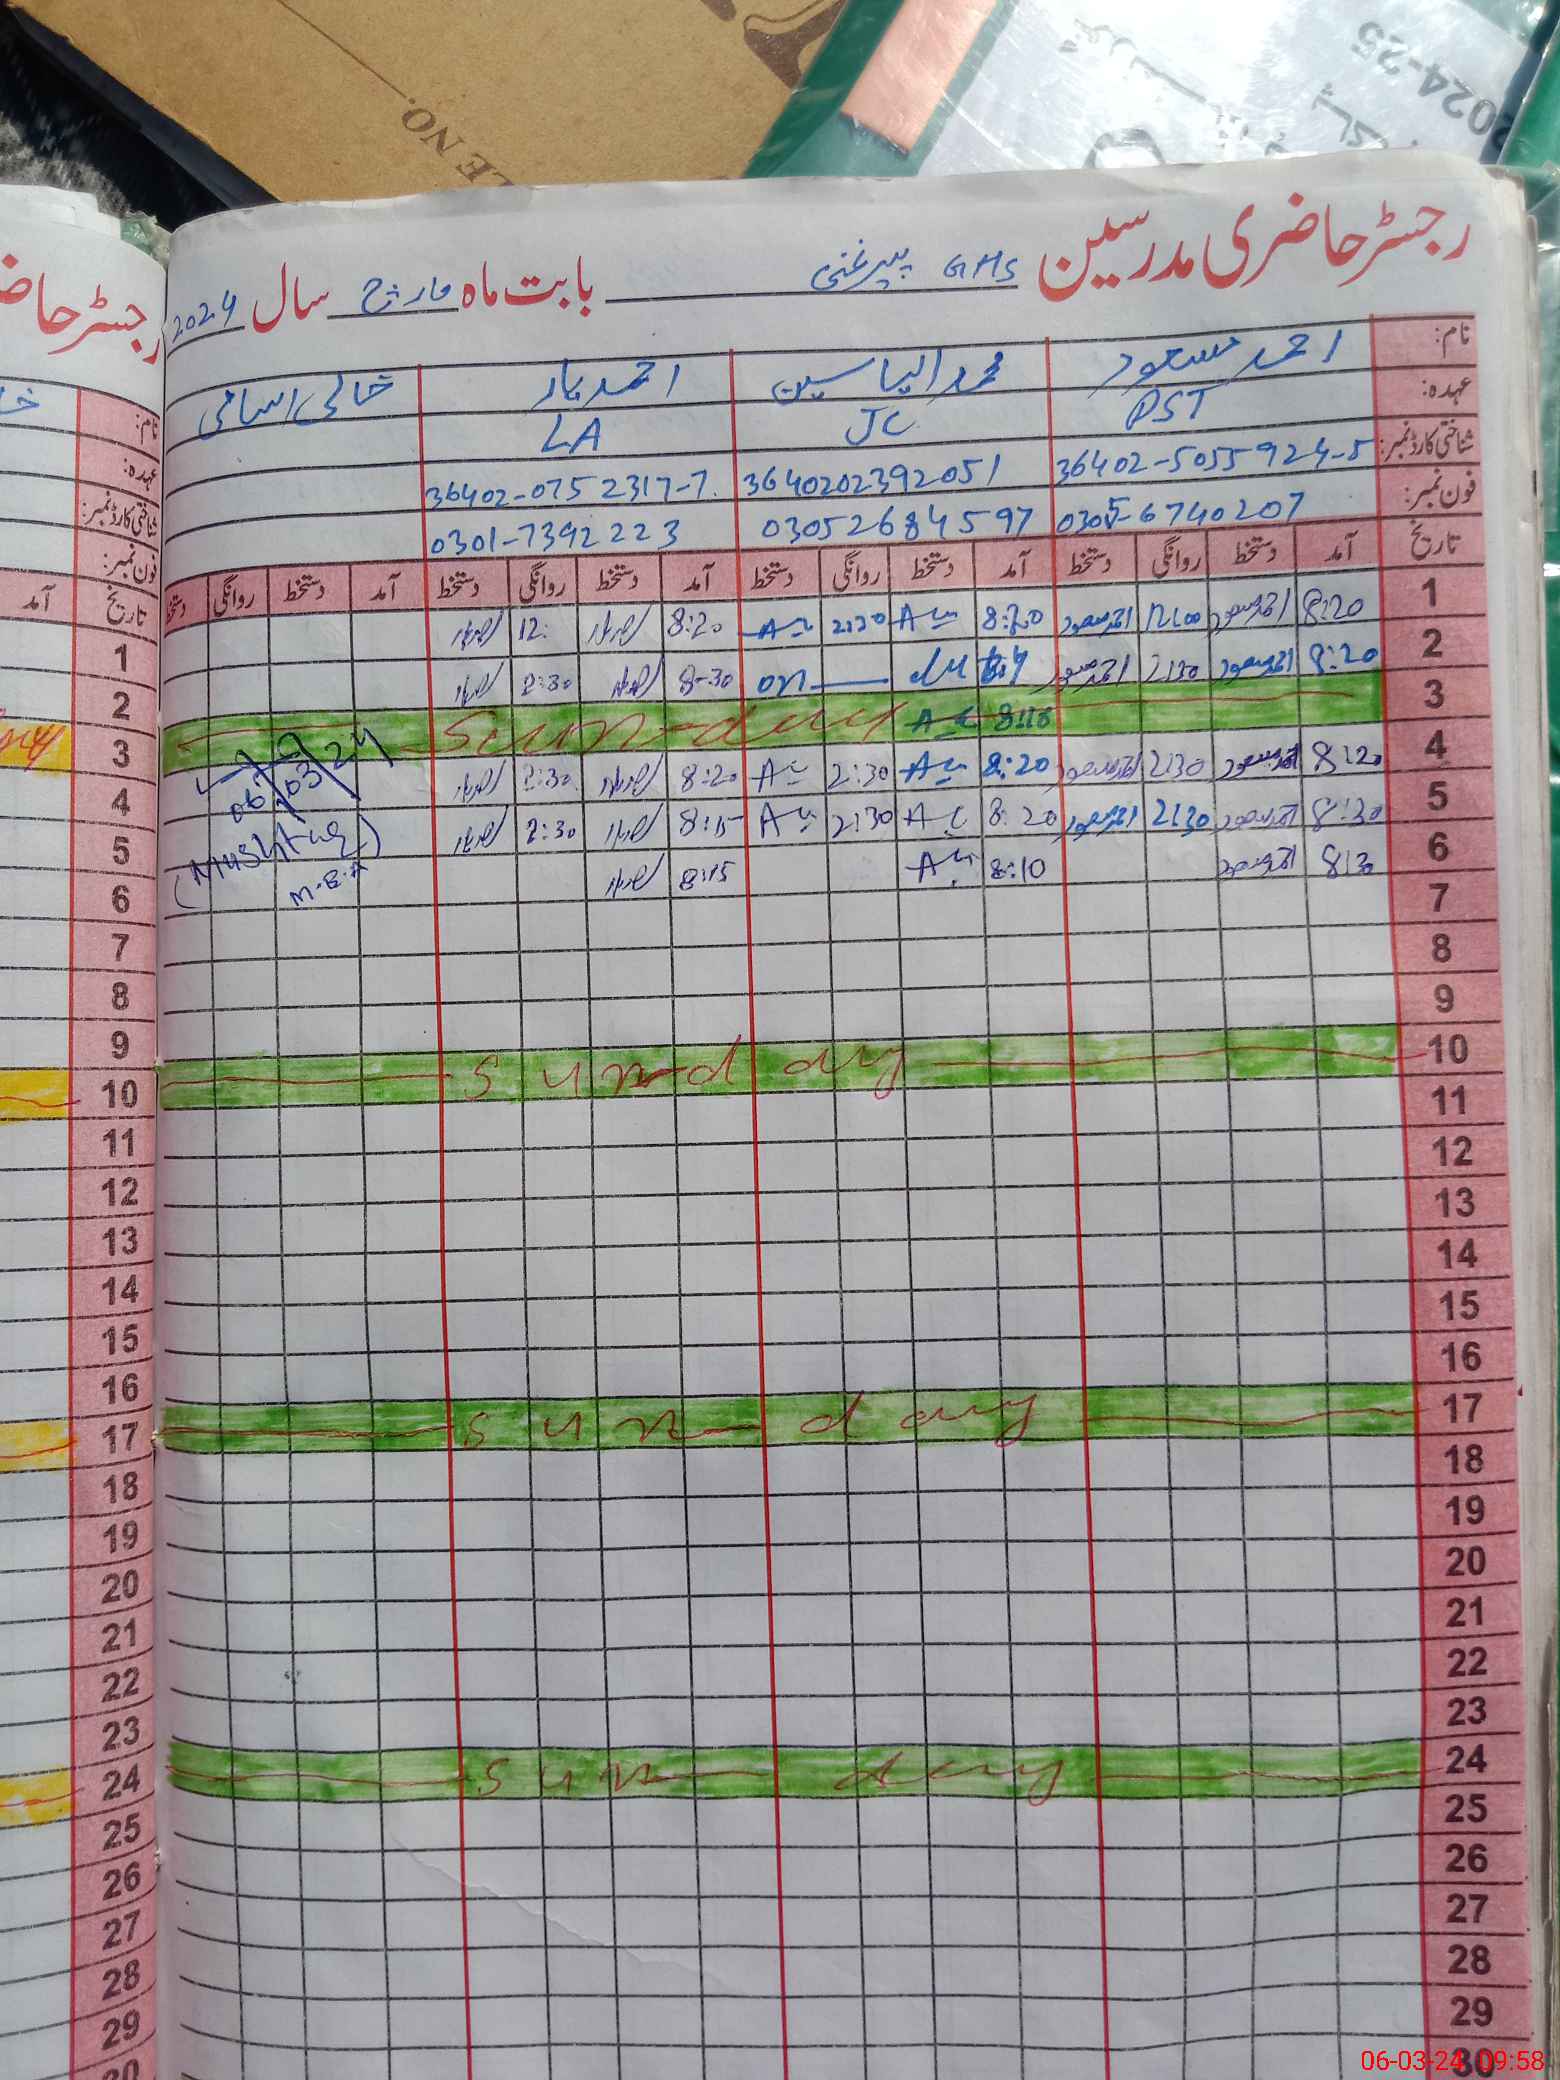 LE NO.
2024-25
رجسٹر حاضری مدرسین GHS پیر غنی بابت ماہ مارچ سال 2024
نام: احمد مسعود محمد الیاسین احمد یار خالی اسامی
عہدہ: PST JC LA
شناختی کارڈ نمبر: 36402-5055924-5 3640202392051 36402-0752317-7
فون نمبر: 0305-6740207 03052684597 0301-7392223
تاریخ آمد دستخط روانگی دستخط آمد دستخط روانگی دستخط آمد دستخط روانگی دستخط آمد دستخط روانگی دستخط
1 8:20 احمد مسعود 12:00 احمد مسعود 8:20 2:30 8:20 12:
2 8:20 احمد مسعود 2:30 احمد مسعود 8-30 2:30
3 8:15 Sunday
4 8:20 احمد مسعود 2:30 احمد مسعود 8:20 2:30 8:20 2:30
5 8:30 احمد مسعود 2:30 احمد مسعود 8:20 2:30 8:15 2:30
6 8:30 احمد مسعود 8:10 8:15
06/03/24
(Mushtaq)
M.E.A
7
8
9
10 Sunday
11
12
13
14
15
16
17 Sunday
18
19
20
21
22
23
24 Sunday
25
26
27
28
29
30
رجسٹر حاض
نام:
عہدہ:
شناختی کارڈ نمبر:
فون نمبر:
تاریخ آمد
1
2
3
4
5
6
7
8
9
10
11
12
13
14
15
16
17
18
19
20
21
22
23
24
25
26
27
28
29
30
06-03-24 09:58